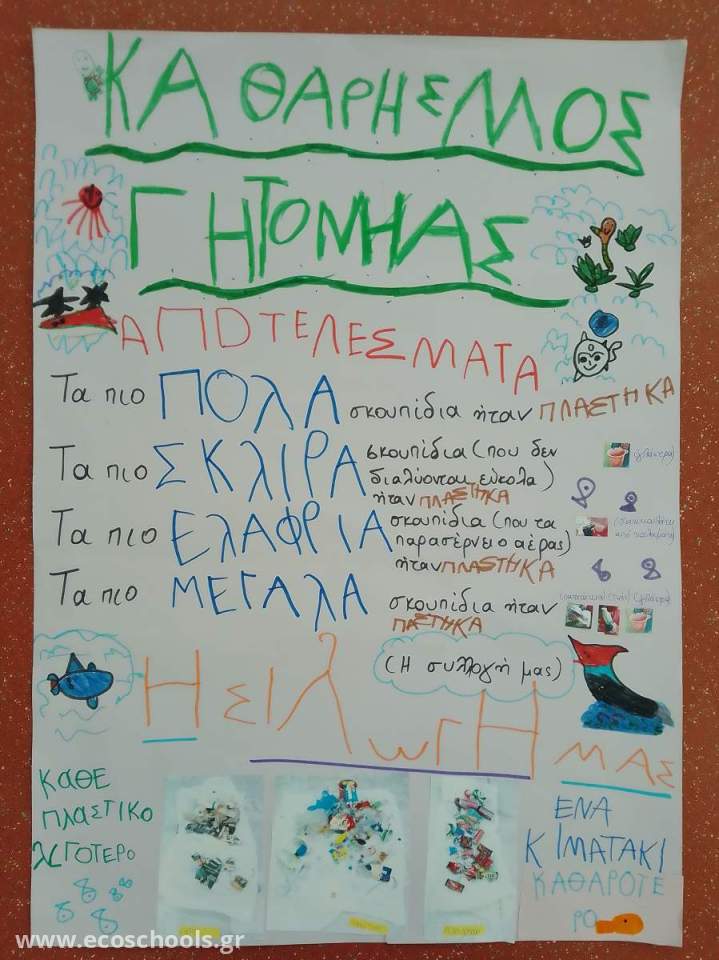 ΚΑΘΑΡΗΣΜΟΣ
ΓΗΤΟΝΗΑΣ
ΑΠΟΤΕΛΕΣΜΑΤΑ
Τα πιο ΠΟΛΑ σκουπίδια ήταν ΠΛΑΣΤΗΚΑ
Τα πιο ΣΚΛΙΡΑ σκουπίδια (που δεν
διαλύονται εύκολα)
ήταν ΠΛΑΣΤΗΚΑ
Τα πιο ΕΛΑΦΡΙΑ σκουπίδια (που τα
παρασέρνει ο αέρας)
ήταν ΠΛΑΣΤΗΚΑ
Τα πιο ΜΕΓΑΛΑ σκουπίδια ήταν
ΠΑΣΤΗΚΑ
(Η συλλογή μας)
Η ΣΙΛΩΓΗ ΜΑΣ
ΚΑΘΕ
ΠΛΑΣΤΙΚΟ
ΛΙΓΟΤΕΡΟ
ΕΝΑ
ΚΙΜΑΤΑΚΙ
ΚΑΘΑΡΟΤΕ
ΡΟ
www.ecoschools.gr